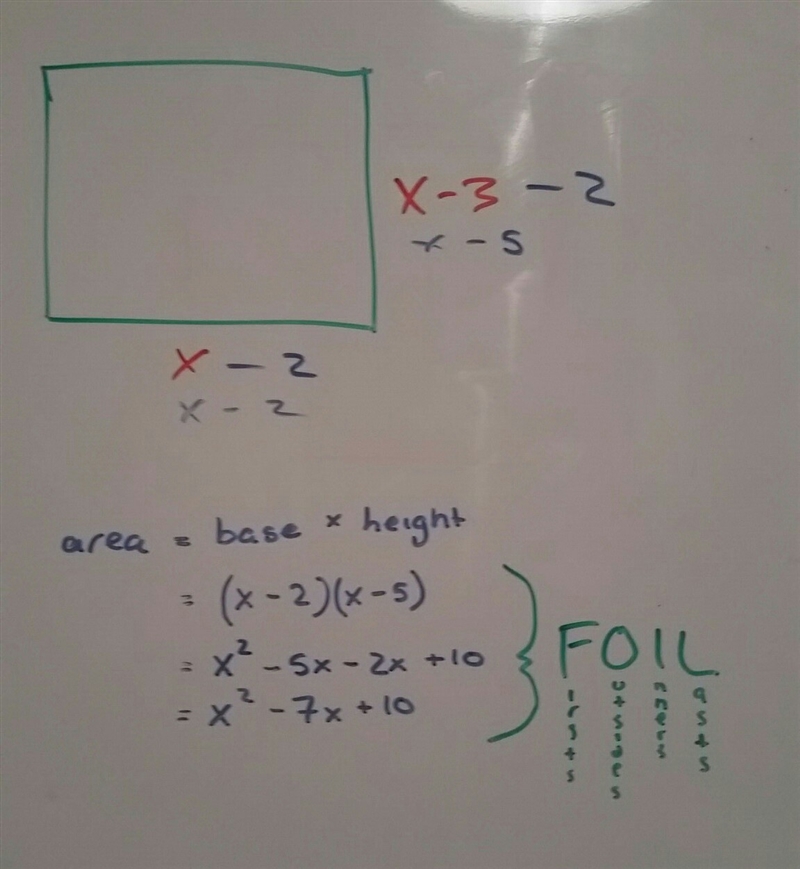 x - 3 - 2
x - 5
x - 2
x - 2
area = base × height
= (x - 2)(x - 5)
= x² - 5x - 2x + 10
= x² - 7x + 10
FOIL
Firsts
Outsides
Inners
Lasts